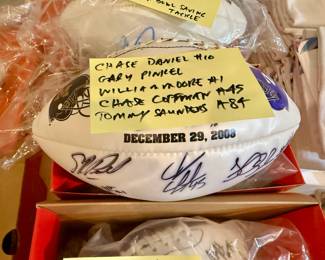 SAVING
TACKLE
CHASE DANIEL #10
GARY PINKEL
WILLIAM MOORE #1
CHASE COFFMAN #45
TOMMY SAUNDERS #84
DECEMBER 29, 2008